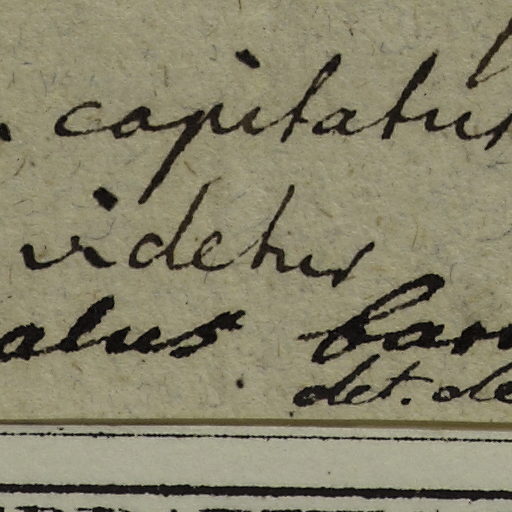 capitatus
videtur
alus bar
det. de